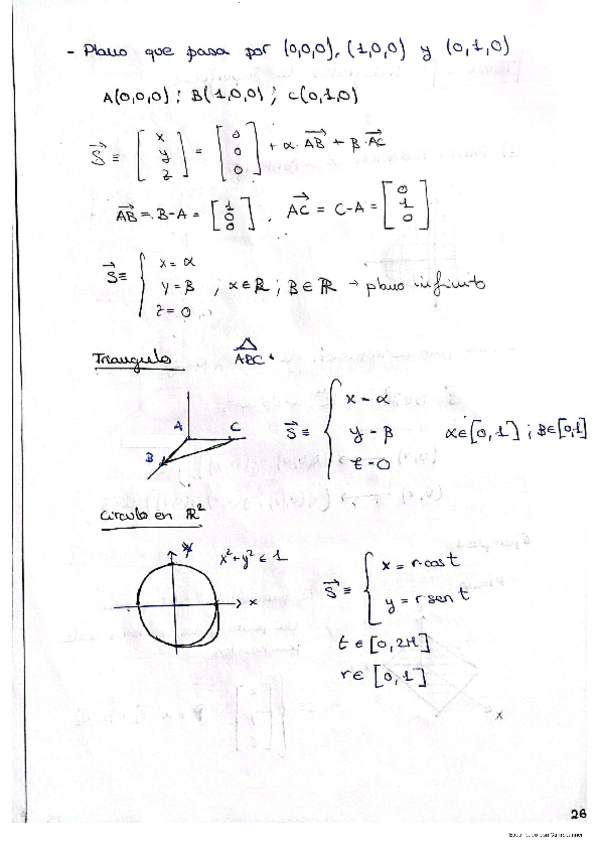 - Plano que pasa por (0,0,0), (1,0,0) y (0,1,0)
A(0,0,0) ; B(1,0,0) ; C(0,1,0)
S⃗ ≡ [x y z] = [0 0 0] + α · AB⃗ + β · AC⃗
AB⃗ = B-A = [1 0 0] , AC⃗ = C-A = [0 1 0]
S⃗ ≡ { x = α
y = β , α ∈ ℝ ; β ∈ ℝ → plano infinito
z = 0
Triangulo
ABC
A
C
B
S⃗ ≡ { x = α
y = β α ∈ [0,1] ; β ∈ [0,1]
z = 0
Circulo en ℝ²
y
x
x² + y² ≤ 1
S⃗ ≡ { x = r cos t
y = r sen t
t ∈ [0, 2π]
r ∈ [0,1]
26